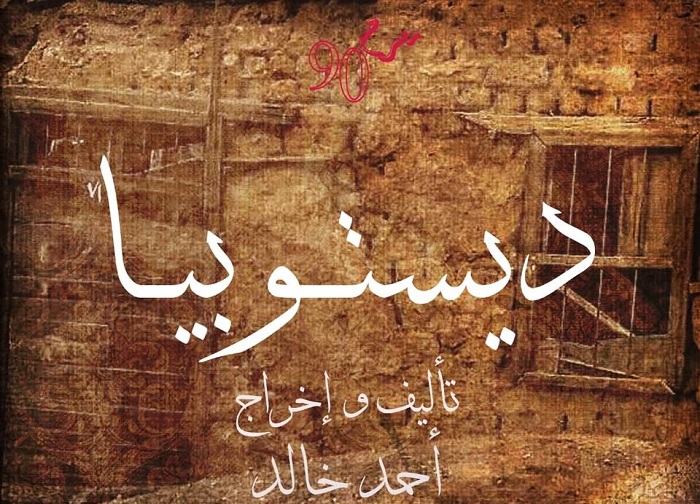 90
ديستوبيا
تأليف و إخراج
أحمد خالد